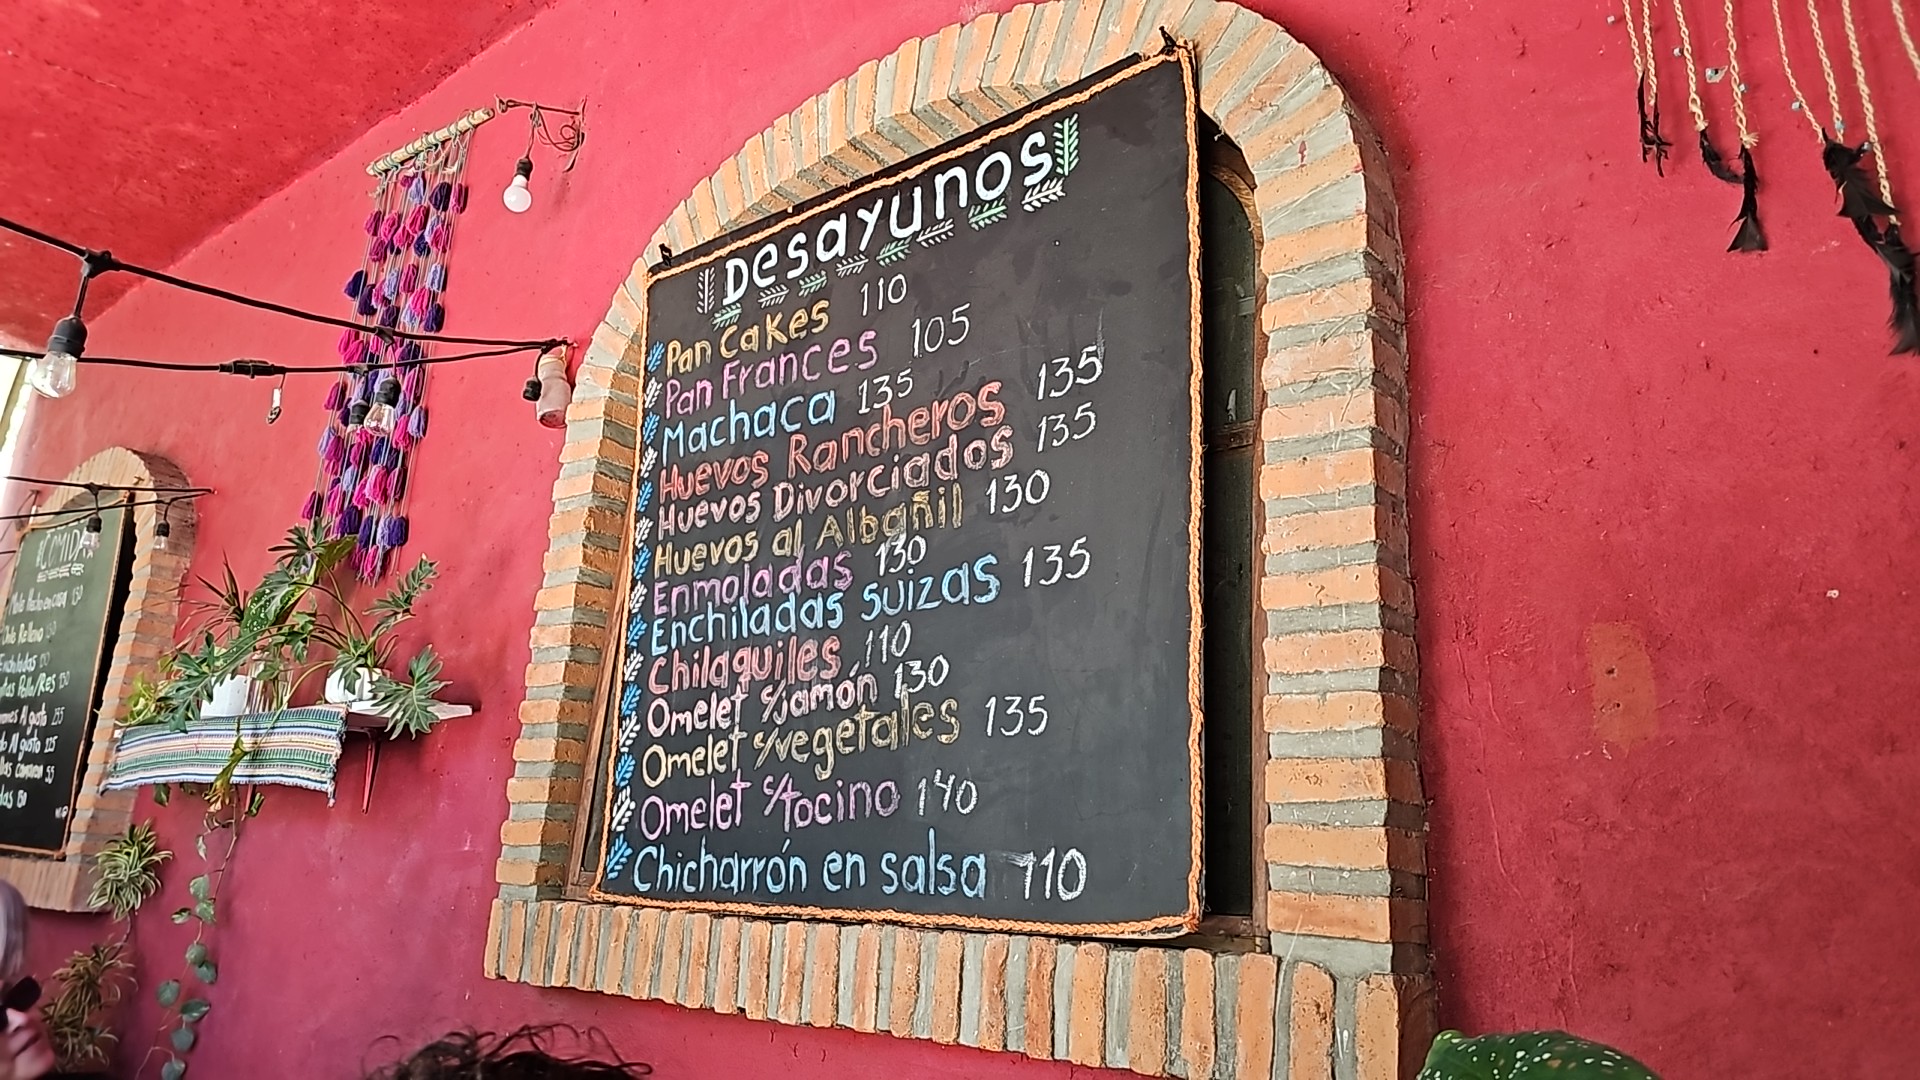 Desayunos
Pan Cakes 110
Pan Frances 105
Machaca 135
Huevos Rancheros 135
Huevos Divorciados 135
Huevos al Albañil 130
Enmoladas 130
Enchiladas suizas 135
Chilaquiles 110
Omelet c/jamón 130
Omelet c/vegetales 135
Omelet c/tocino 140
Chicharrón en salsa 110
COMIDA
Relleno
Pollo/Res 130
Al gusto
Al gusto